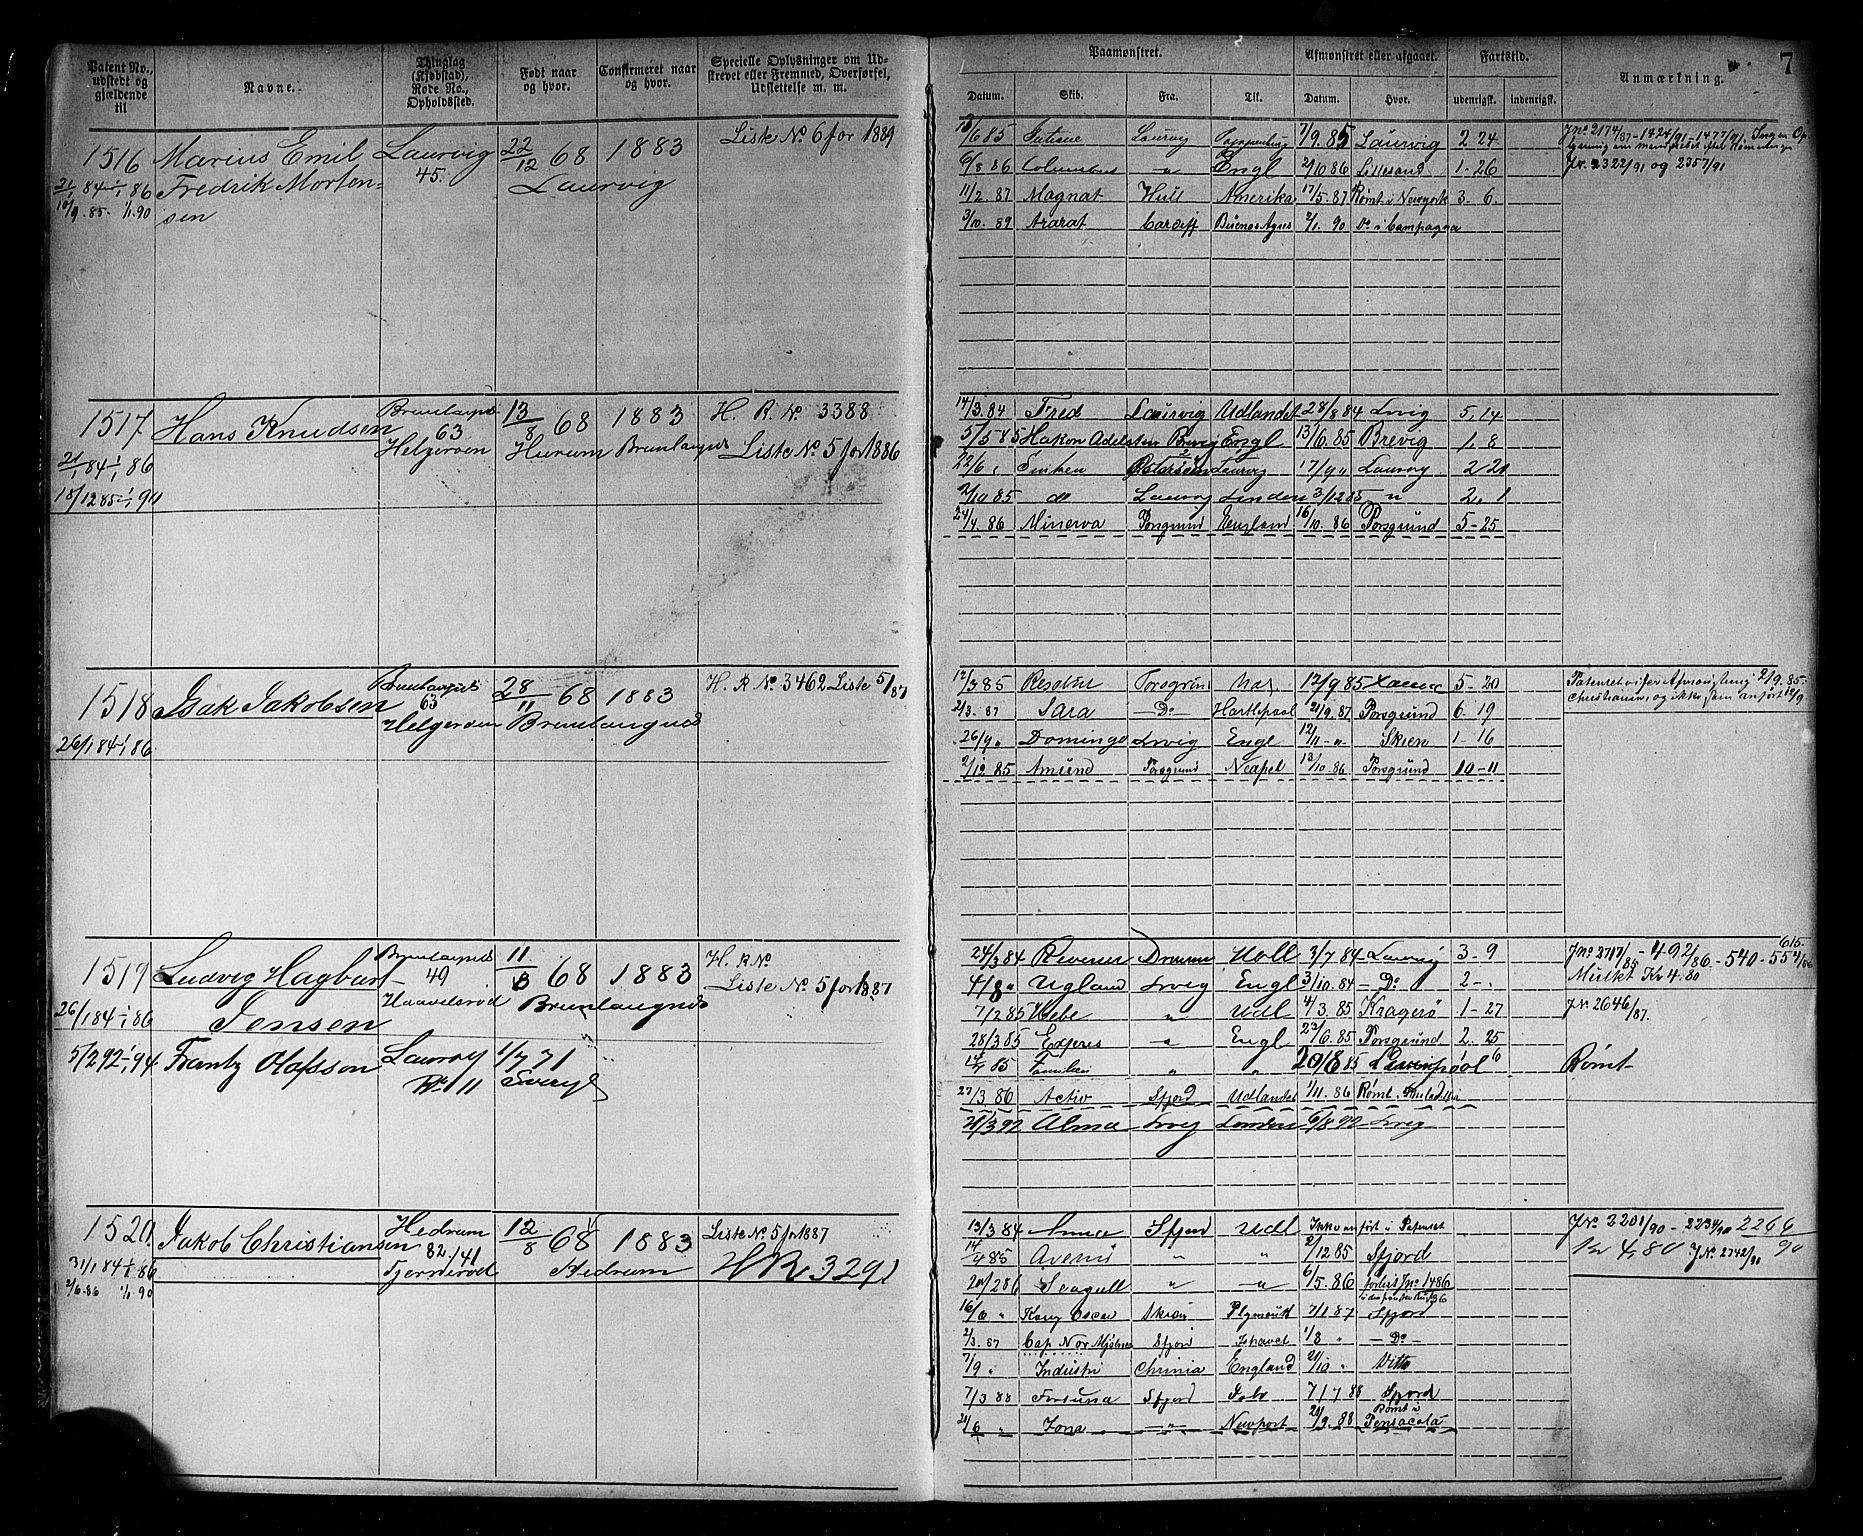 7
Patent No., udstedt og gjældende til
Navne.
Thinglag (Kjøbstad), Rode No., Opholdssted.
Født naar og hvor.
Confirmeret naar og hvor.
Specielle Oplysninger om Udskrevet eller Fremmed, Overførsel, Udslettelse m. m.
Paamønstret.
Afmønstret eller afgaaet.
Fartstid.
Anmærkning.
Datum. Skib. Fra. Til. Datum. Hvor. udenrigsk. indenrigsk.
1516 Marius Emil Laurvig 22/12 68 1883 Liste No 6 for 1889
21/1 84 1/1 86 Fredrik Morten- 45. Laurvig
10/9.85. 1/1.90 sen
/6 85 Laurvig 7/9.85 Laurvig 2 24
6/8 86 Columbus " Engl 2/10 86 Lillesand 1-26
11/2.87 Magnat Hull Amerika 17/5.87 Rømt i Newyork 3-6.
3/10.89 Ararat Cardiff Buenos Ayres 2/1.90 Do i Campagna
J.No 2174/87 - 1424/91 - 1477/91. Ingen Op-
J.No 2322/91 og 2357/91
1517 Hans Knudsen Brunlangnes 13/8 68 1883 H. R. No 3388
63
Helgeroen Hurum Brunlangnes Liste No 5 for 1886
21/1 84 1/1 86
18/12 85 1/1 90
14/3.84 Fred Laurvig Udlandet 28/8 84 Lvig 5.14
5/5 85 Hakon Adelsten Brevig Engl 13/6.85 Brevig 1.8
22/6 " Laurvig 17/9 " Laurvig 2/21
2/10 85 do Laurvig 3/12 85 " 2.1
24/4.86 Minerva Porsgrund England 16/10.86 Porsgrund 5-25
1518 Isak Jakobsen Brunlangnes 28/11 68 1883 H. R No 3462 Liste 5/87
63
Helgeroen Brunlangnes
26/1 84 1/1 86
12/3 85 12/9 85 5-20
2/3.87 Sara Do Hartlepool 21/9.87 Porsgrund 6.19
26/9 " Domingo Lvig Engl 12/11 - " Skien 1-16
2/12 85 Amund Porsgrund Neapel 13/10.86 Porsgrund 10-11
Patentet viser Afmønstring 2/9.85
Christiania, og ikke som anført 12/9
1519 Ludvig Hagbart Brunlangnes 11/8 68 1883 H. R No
49 Liste No. 5 for 1887
26/1 84 1/1 86 Jensen Brunlangnes
24/3 84 Drammen Hull 3/7 84 Laurvig 3-9
4/8 " Ugland Lvig Engl 3/10.84 - Do 2-.
7/2 85 Hebe " Udl 4/3.85 Kragerø 1-27
28/3 85 Expres " Engl 23/6.85 Porsgrund 2.25
85 " " 20/8 85
27/3.86 Activ Sfjord Udlandet 1/11.86 Rømt i
J.No 2717/85 - 492/86 - 540 - 55 /86
615
Mulkt Kr 4.80
J.No 2646/87.
Rømt
5/2 92 1/1 94 Frantz Olafsson Laurvig 1/7 71
No 11 Sverige
/3 92 Alma Lvig London 6/8 92 Lvig
1520 Jakob Christiansen Hedrum 12/8 68 1883 Liste No. 5 for 1887
82./41
Hedrum HR 3291
31/1 84 1/1 86
2/6.86 1/1.90
13/3 84 Anna Sfjord Udl Ikke anført i Patentet
14/4 85 " " 2/12 85 Sfjord
20/2 86 Seagull " " 6/5.86 forlist J.No 1486
16/6 " Kong Oscar Skien Plymouth 7/1 87 Sfjord
2/3.87 Cap Nor Mjølner Sfjord Ishavet 1/8 " - Do -
7/9 " Industri Chrinia England 21/10 " Ditto
7/3 88 Fortuna Sfjord 7/7 88 Sfjord
21/6 " Iona - " - Newport 21/9.88 Rømt i Pensacola
J.No 3201/90 - 2234/90 2266/90
Kr 4,80 J.No. 2742/90